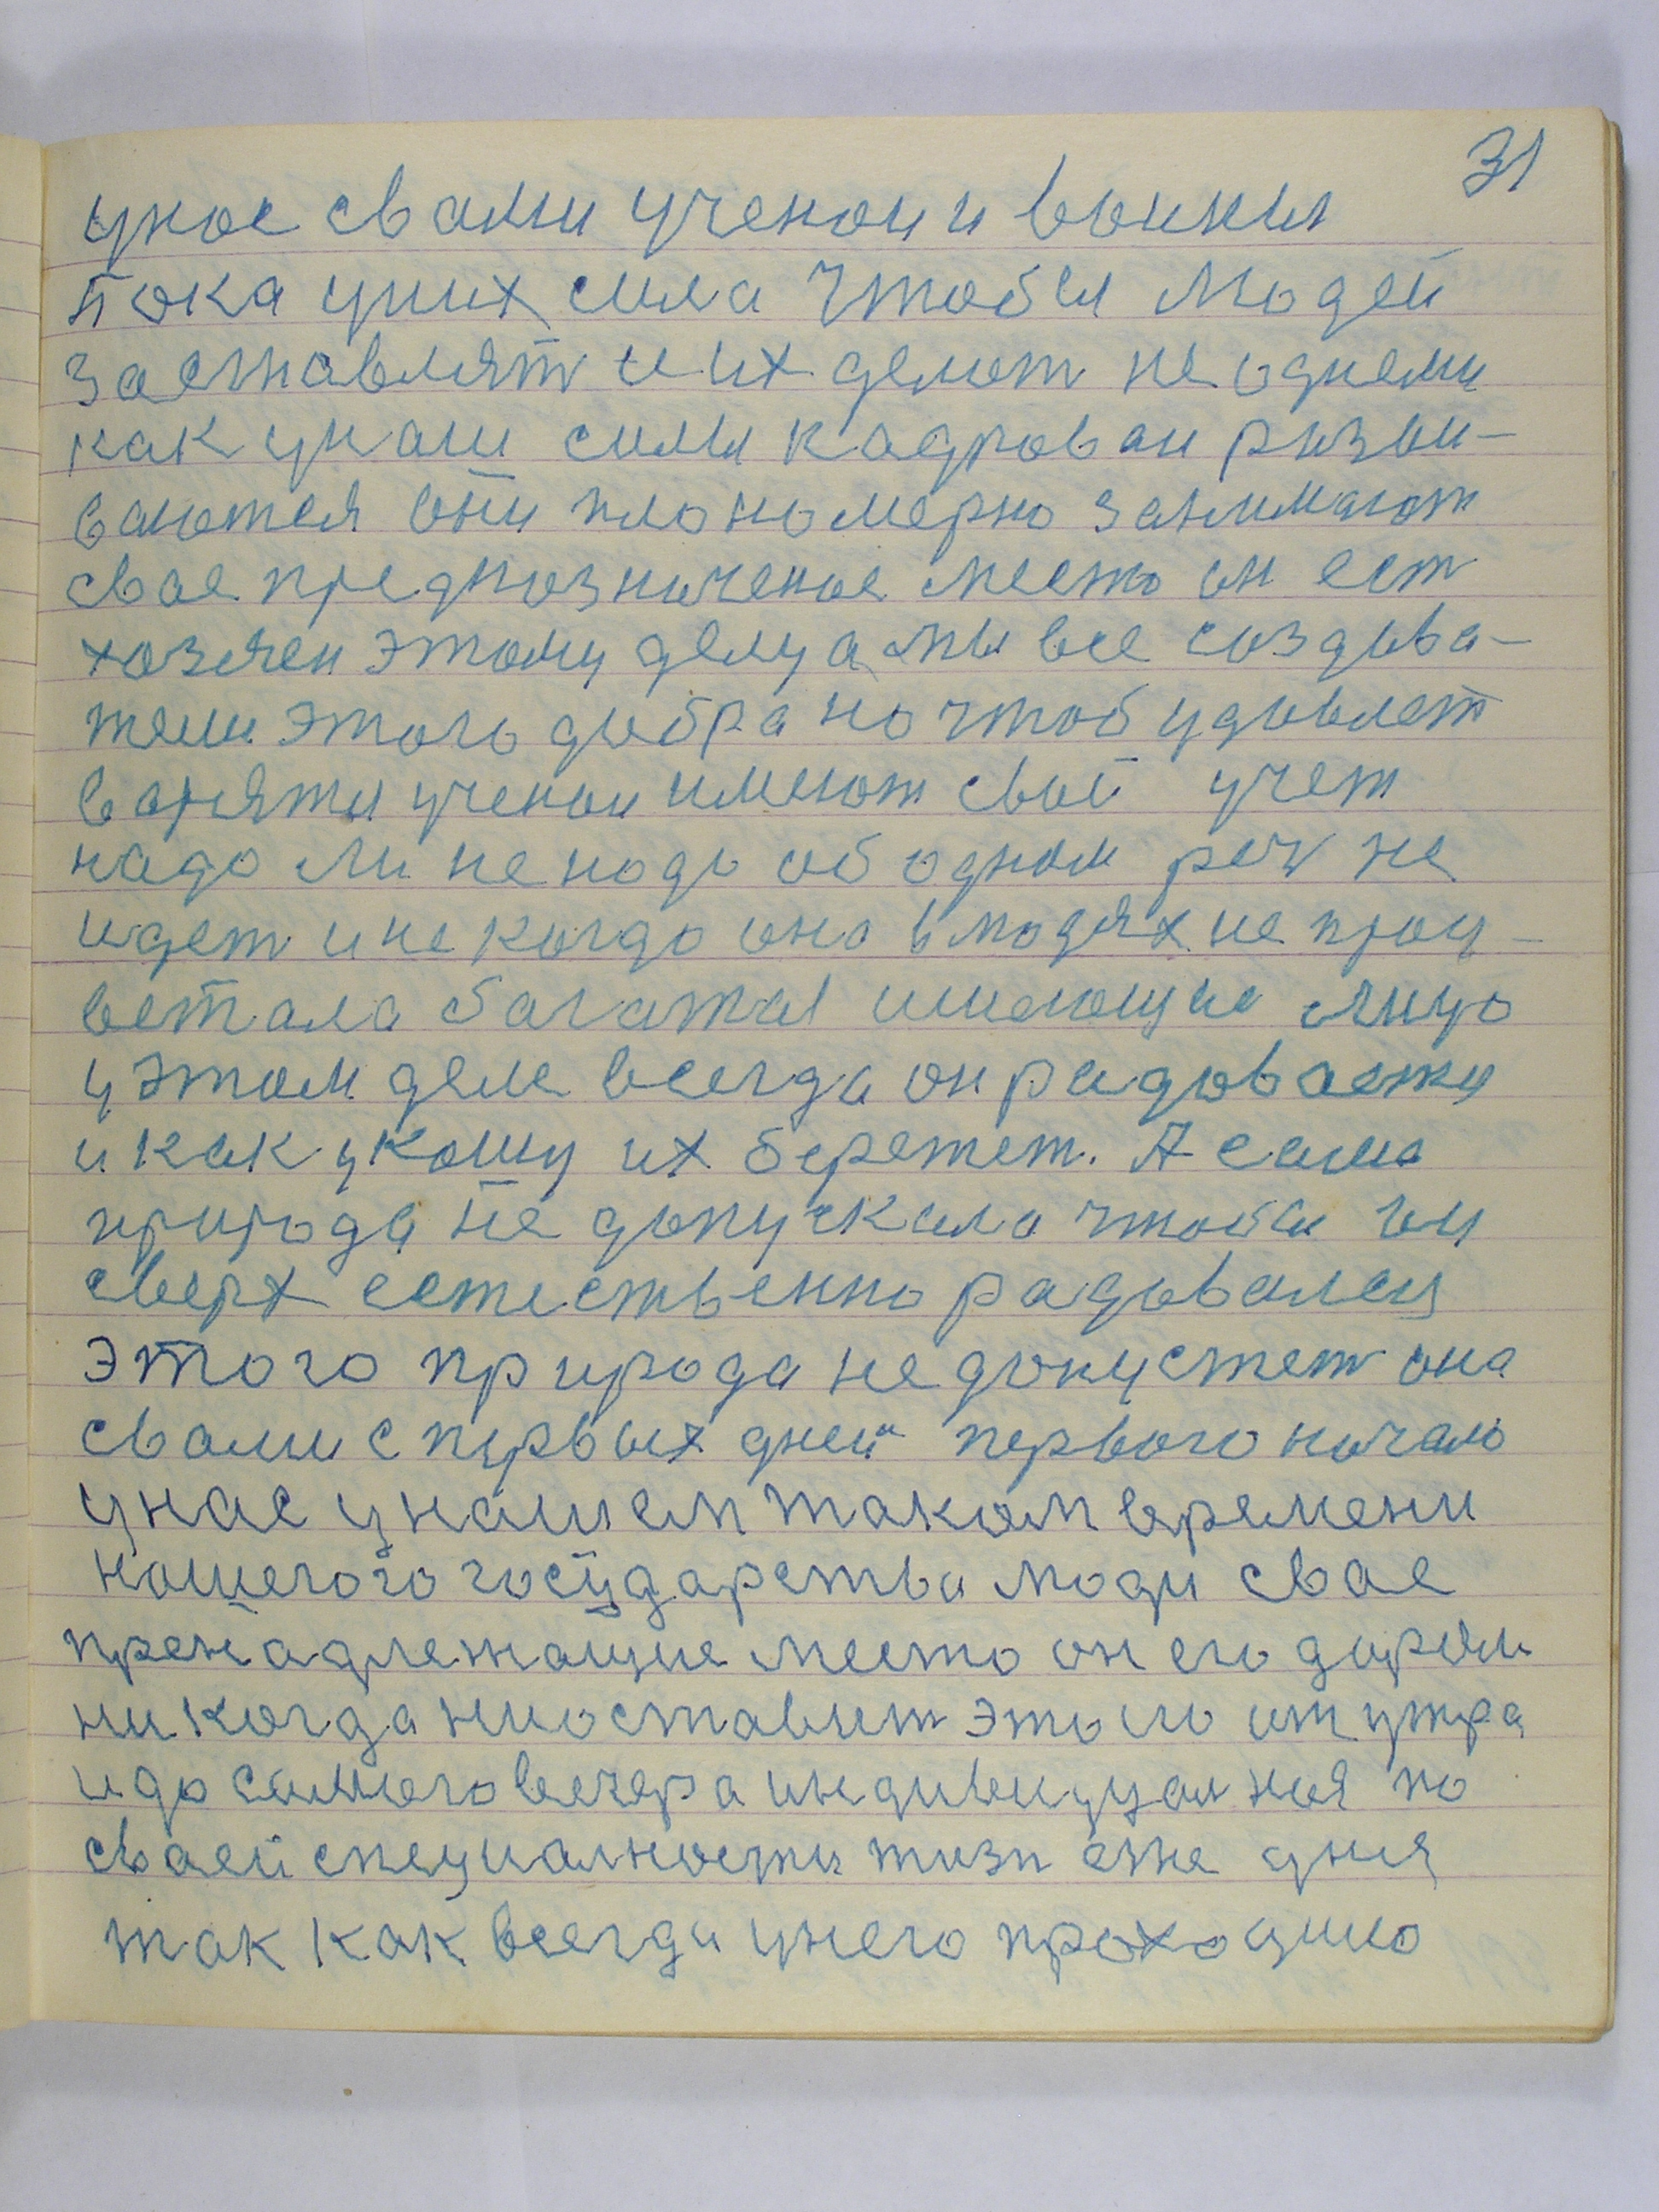 31
унас свами ученои и воины
пока уних сила чтобы людей
заставлят и их делот не одними
как унаш силы кадроваи розви-
ваются они плономерно занимают
свае предпозначеное место он ест
хозяен этому делу а мы все создава-
тели этого добра но чтоб удовлет
варяты ученои имеют свой учет
надо ли не нодо об одном реч не
идет и не когдо оно в людях не проц-
ветала багатаи имеющие лицо
у этом деле всегда он радоваежи
и как у кошу их бережет. А сама
природа не допускала чтобы ои
сверх естественно радовалси
этого природа не допустет она
свами с первых дней первого ночало
унас у нашем таком времени
ношегого государства люди свае
пренадлежащие место он его даром
никогда ниоставит этого от утра
и до самого вечера индивидуалная по
сваей специалности жизн еже дния
так как всегда унего проходило